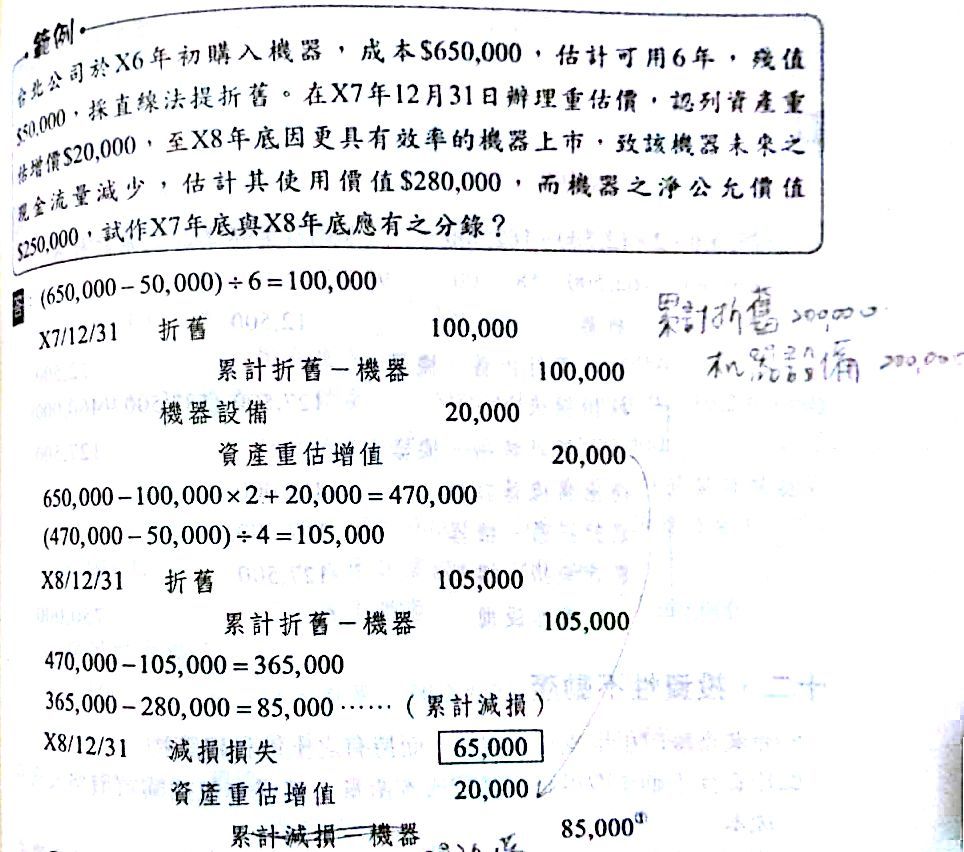 範例
台北公司於X6年初購入機器，成本$650,000，估計可用6年，殘值
$50,000，採直線法提折舊。在X7年12月31日辦理重估價，認列資產重
估增價$20,000，至X8年底因更具有效率的機器上市，致該機器未來之
現金流量減少，估計其使用價值$280,000，而機器之淨公允價值
$250,000，試作X7年底與X8年底應有之分錄？
答：(650,000－50,000)÷6＝100,000
X7/12/31 折舊 100,000
累計折舊－機器 100,000
機器設備 20,000
資產重估增值 20,000
累計折舊 200,000
机器設備 200,000
650,000－100,000×2＋20,000＝470,000
(470,000－50,000)÷4＝105,000
X8/12/31 折舊 105,000
累計折舊－機器 105,000
470,000－105,000＝365,000
365,000－280,000＝85,000……（累計減損）
X8/12/31 減損損失 65,000
資產重估增值 20,000
累計減損－機器 85,000①